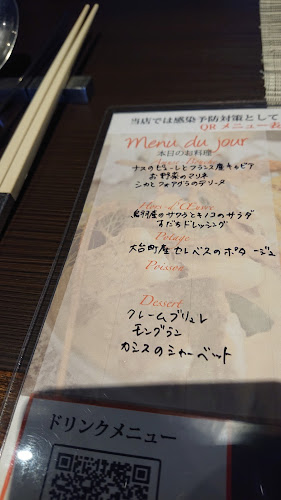 当店では感染予防対策として
QR メニューお
Menu du jour
本日のお料理
ナスのピューレとフランス産キャビア
お野菜のマリネ
シカとフォアグラのテリーヌ
Hors-d'Œuvre
産のサワラとキノコのサラダ
すだちドレッシング
Potage
大台町産セレベスのポタージュ
Poisson
Dessert
クレームブリュレ
モンブラン
カシスのシャーベット
ドリンクメニュー